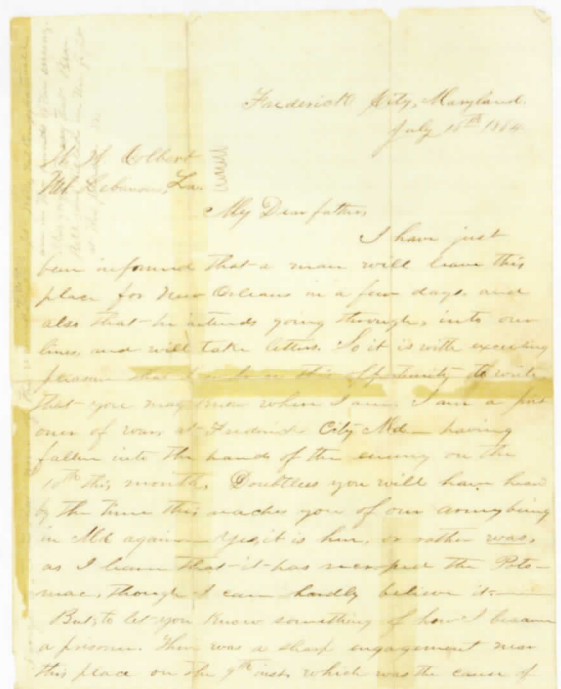 Frederick City, Maryland.
July 18th 1864.
H. H. Colbert
Mt Lebanon, La.
My Dear father,
I have just
been informed that a man will leave this
place for New Orleans in a few days, and
also that he intends going through, into our
lines, and will take letters. So it is with exceeding
pleasure that I embrace this opportunity to write
that you may know where I am. I am a pris
oner of war, at Frederick City Md— having
fallen into the hands of the enemy on the
10th this month. Doubtless you will have heard
by the time this reaches you of our army being
in Md again— Yes, it is here, or rather was,
as I learn that it has recrossed the Poto-
mac, though I can hardly believe it.
But, to let you know something of how I became
a prisoner. There was a sharp engagement near
this place on the 9th inst. which was the cause of